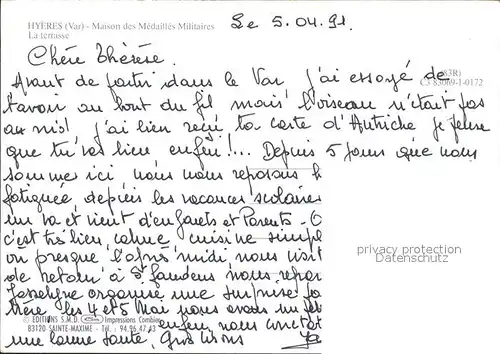 HYÈRES (Var) - Maison des Médaillés Militaires
La terrasse
Le 5.04.91.
Chère Thérèse.
(83R)
C3 83069-1-0172
Avant de partir dans le Var j'ai essayé de
t'avoir au bout du fil mais l'oiseau n'était pas
au nid! j'ai bien reçu ta carte d'Autriche je pense
que tu vas bien enfin!... Depuis 5 jours que nous
somme ici nous nous reposons
fatiguée, depuis les vacances scolaires
un va et vient d'enfants et Parents -
c'est très bien, calme, cuisine simple
on presque l'après midi nous
de retour à St Gaudens nous
Josselyne organise une surprise
les 4 et 5 Mai nous avons
© EDITIONS S.M.D. Impressions Combier
83120 SAINTE-MAXIME - Tél. : 94.96.47.43
enfin nous
une bonne santé, gros bisous
privacy protection
Datenschutz